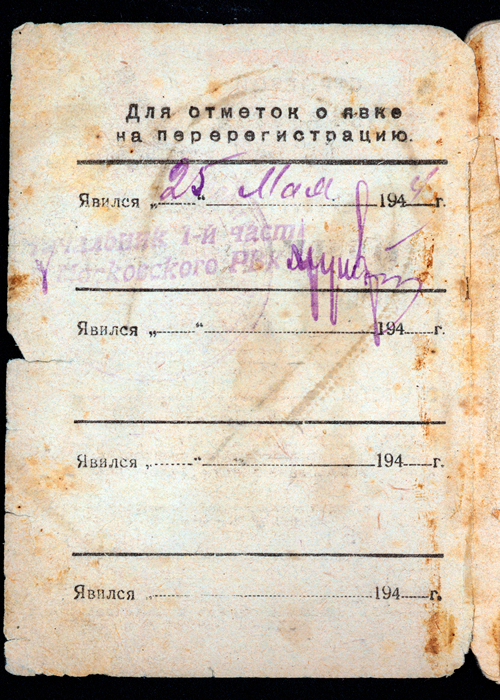 Для отметок о явке
на перерегистрацию.
Явился „25“ Мая 1944 г.
1-й части
РВК
Явился „ “ 194 г.
Явился „ “ 194 г.
Явился „ 194 г.